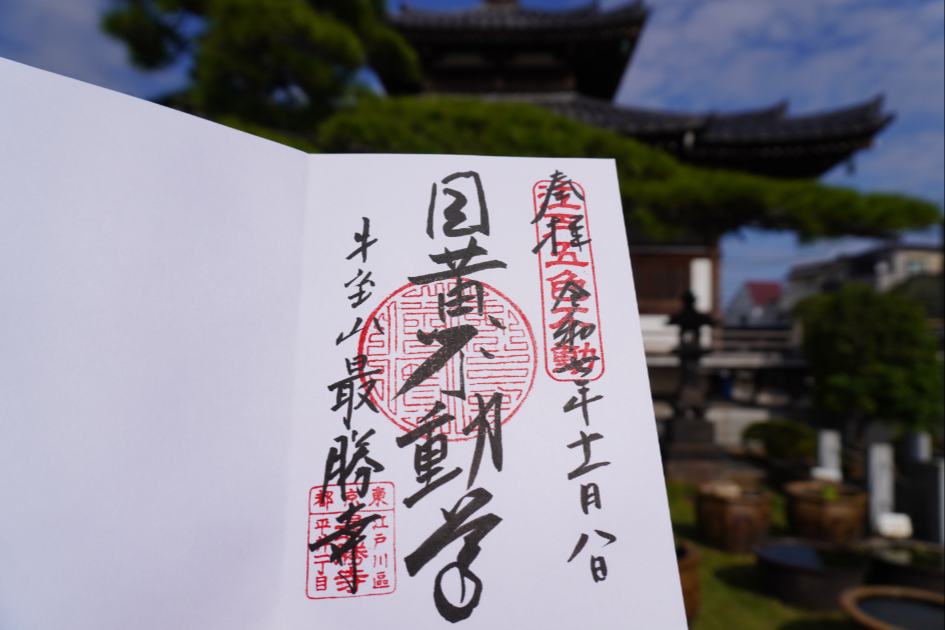 奉拝 令和七年十一月八日
江戸五色不動
目黄不動尊
牛宝山最勝寺
東京都
江戸川區
最勝寺
平井一丁目